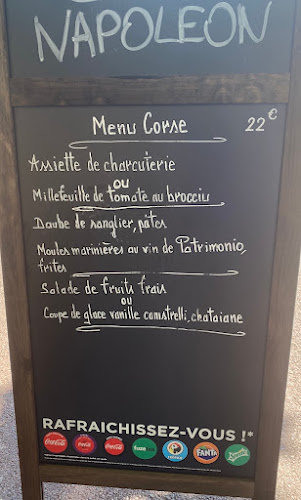 NAPOLEON
Menu Corse 22€
Assiette de charcuterie
ou
Millefeuille de tomate au brocciu
Daube de sanglier, pâtes
Moules marinières au vin de Patrimonio,
frites
Salade de fruits frais
ou
Coupe de glace vanille canistrelli, chataiane
RAFRAICHISSEZ-VOUS !*
FANTA